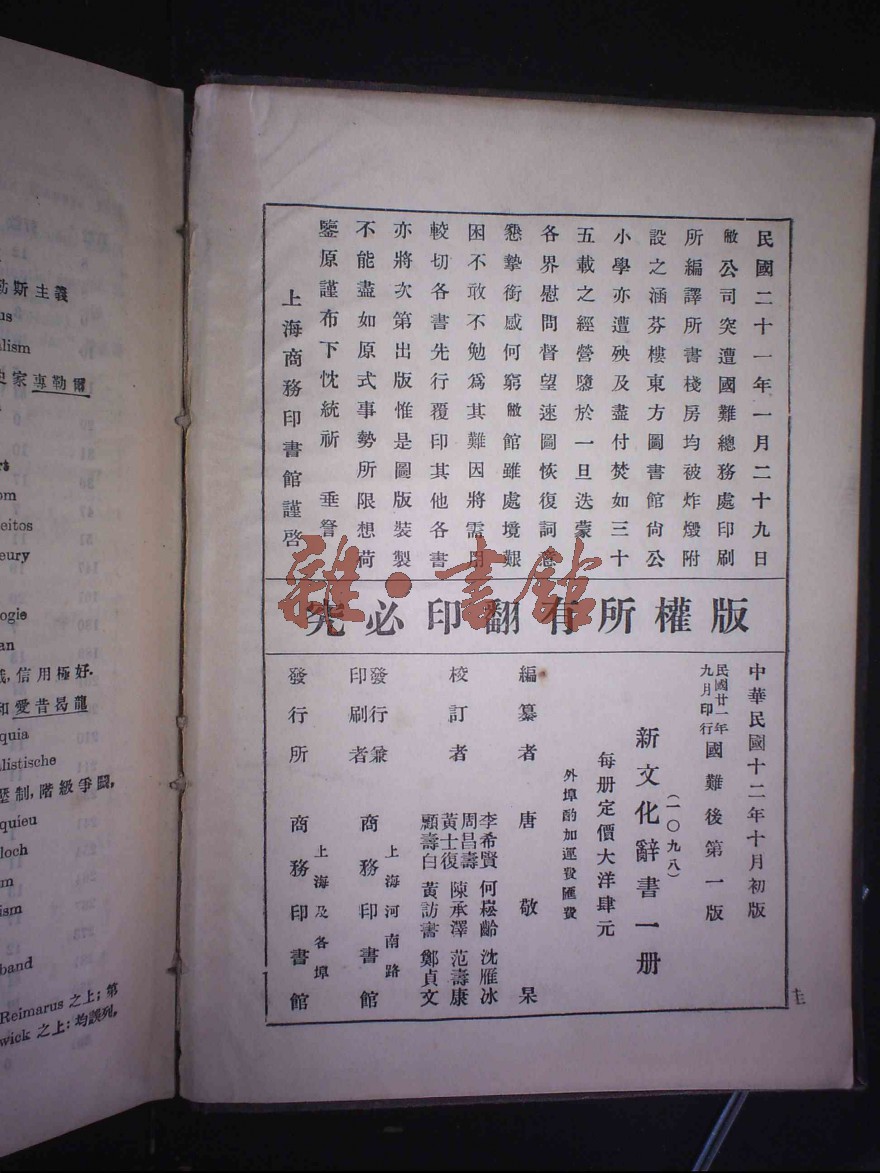 民國二十一年一月二十九日
敝公司突遭國難總務處印刷
所編譯所書棧房均被炸燬附
設之涵芬樓東方圖書館尙公
小學亦遭殃及盡付焚如三十
五載之經營隳於一旦迭蒙
各界慰問督望速圖恢復詞意
懇摯銜感何窮敝館雖處境艱
困不敢不勉爲其難因將需用
較切各書先行覆印其他各書
亦將次第出版惟是圖版裝製
不能盡如原式事勢所限想荷
鑒原謹布下忱統祈 垂詧
上海商務印書館謹啓
版權所有翻印必究
雜·書館
中華民國十二年十月初版
民國廿一年九月印行 國難後第一版
新文化辭書一册
(一〇九八)
每册定價大洋肆元
外埠酌加運費匯費
編纂者 唐敬杲
校訂者 李希賢 何崧齡 沈雁冰
周昌壽 陳承澤 范壽康
黃士復 黃訪書 鄭貞文
顧壽白
發行兼印刷者 上海河南路 商務印書館
發行所 上海及各埠 商務印書館
勒斯主義
us
alism
史家專勒爾
rt
om
eitos
eury
ogie
an
信用極好.
和愛昔曷龍
quia
listische
壓制,階級爭鬪,
quieu
loch
m
ism
band
Reimarus 之上; 第
wick 之上: 均誤列,